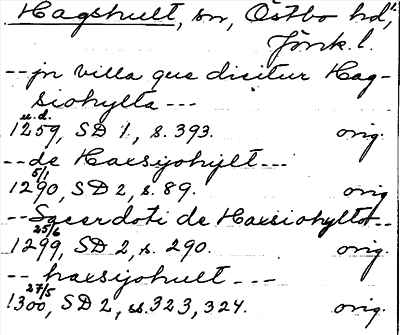 Hagshult, sn, Östbo hd,
Jönk. l.
-- jn villa que dicitur Hag-
siohylta ---
u.d.
1259, SD 1, s. 393. orig.
-- de Haxsyohylt ---
5/1
1290, SD 2, s. 89. orig.
-- Sacerdoti de Haxiohylta --
25/6
1299, SD 2, s. 290. orig.
-- haxsiohult ---
27/5
1300, SD 2, ss. 323, 324. orig.